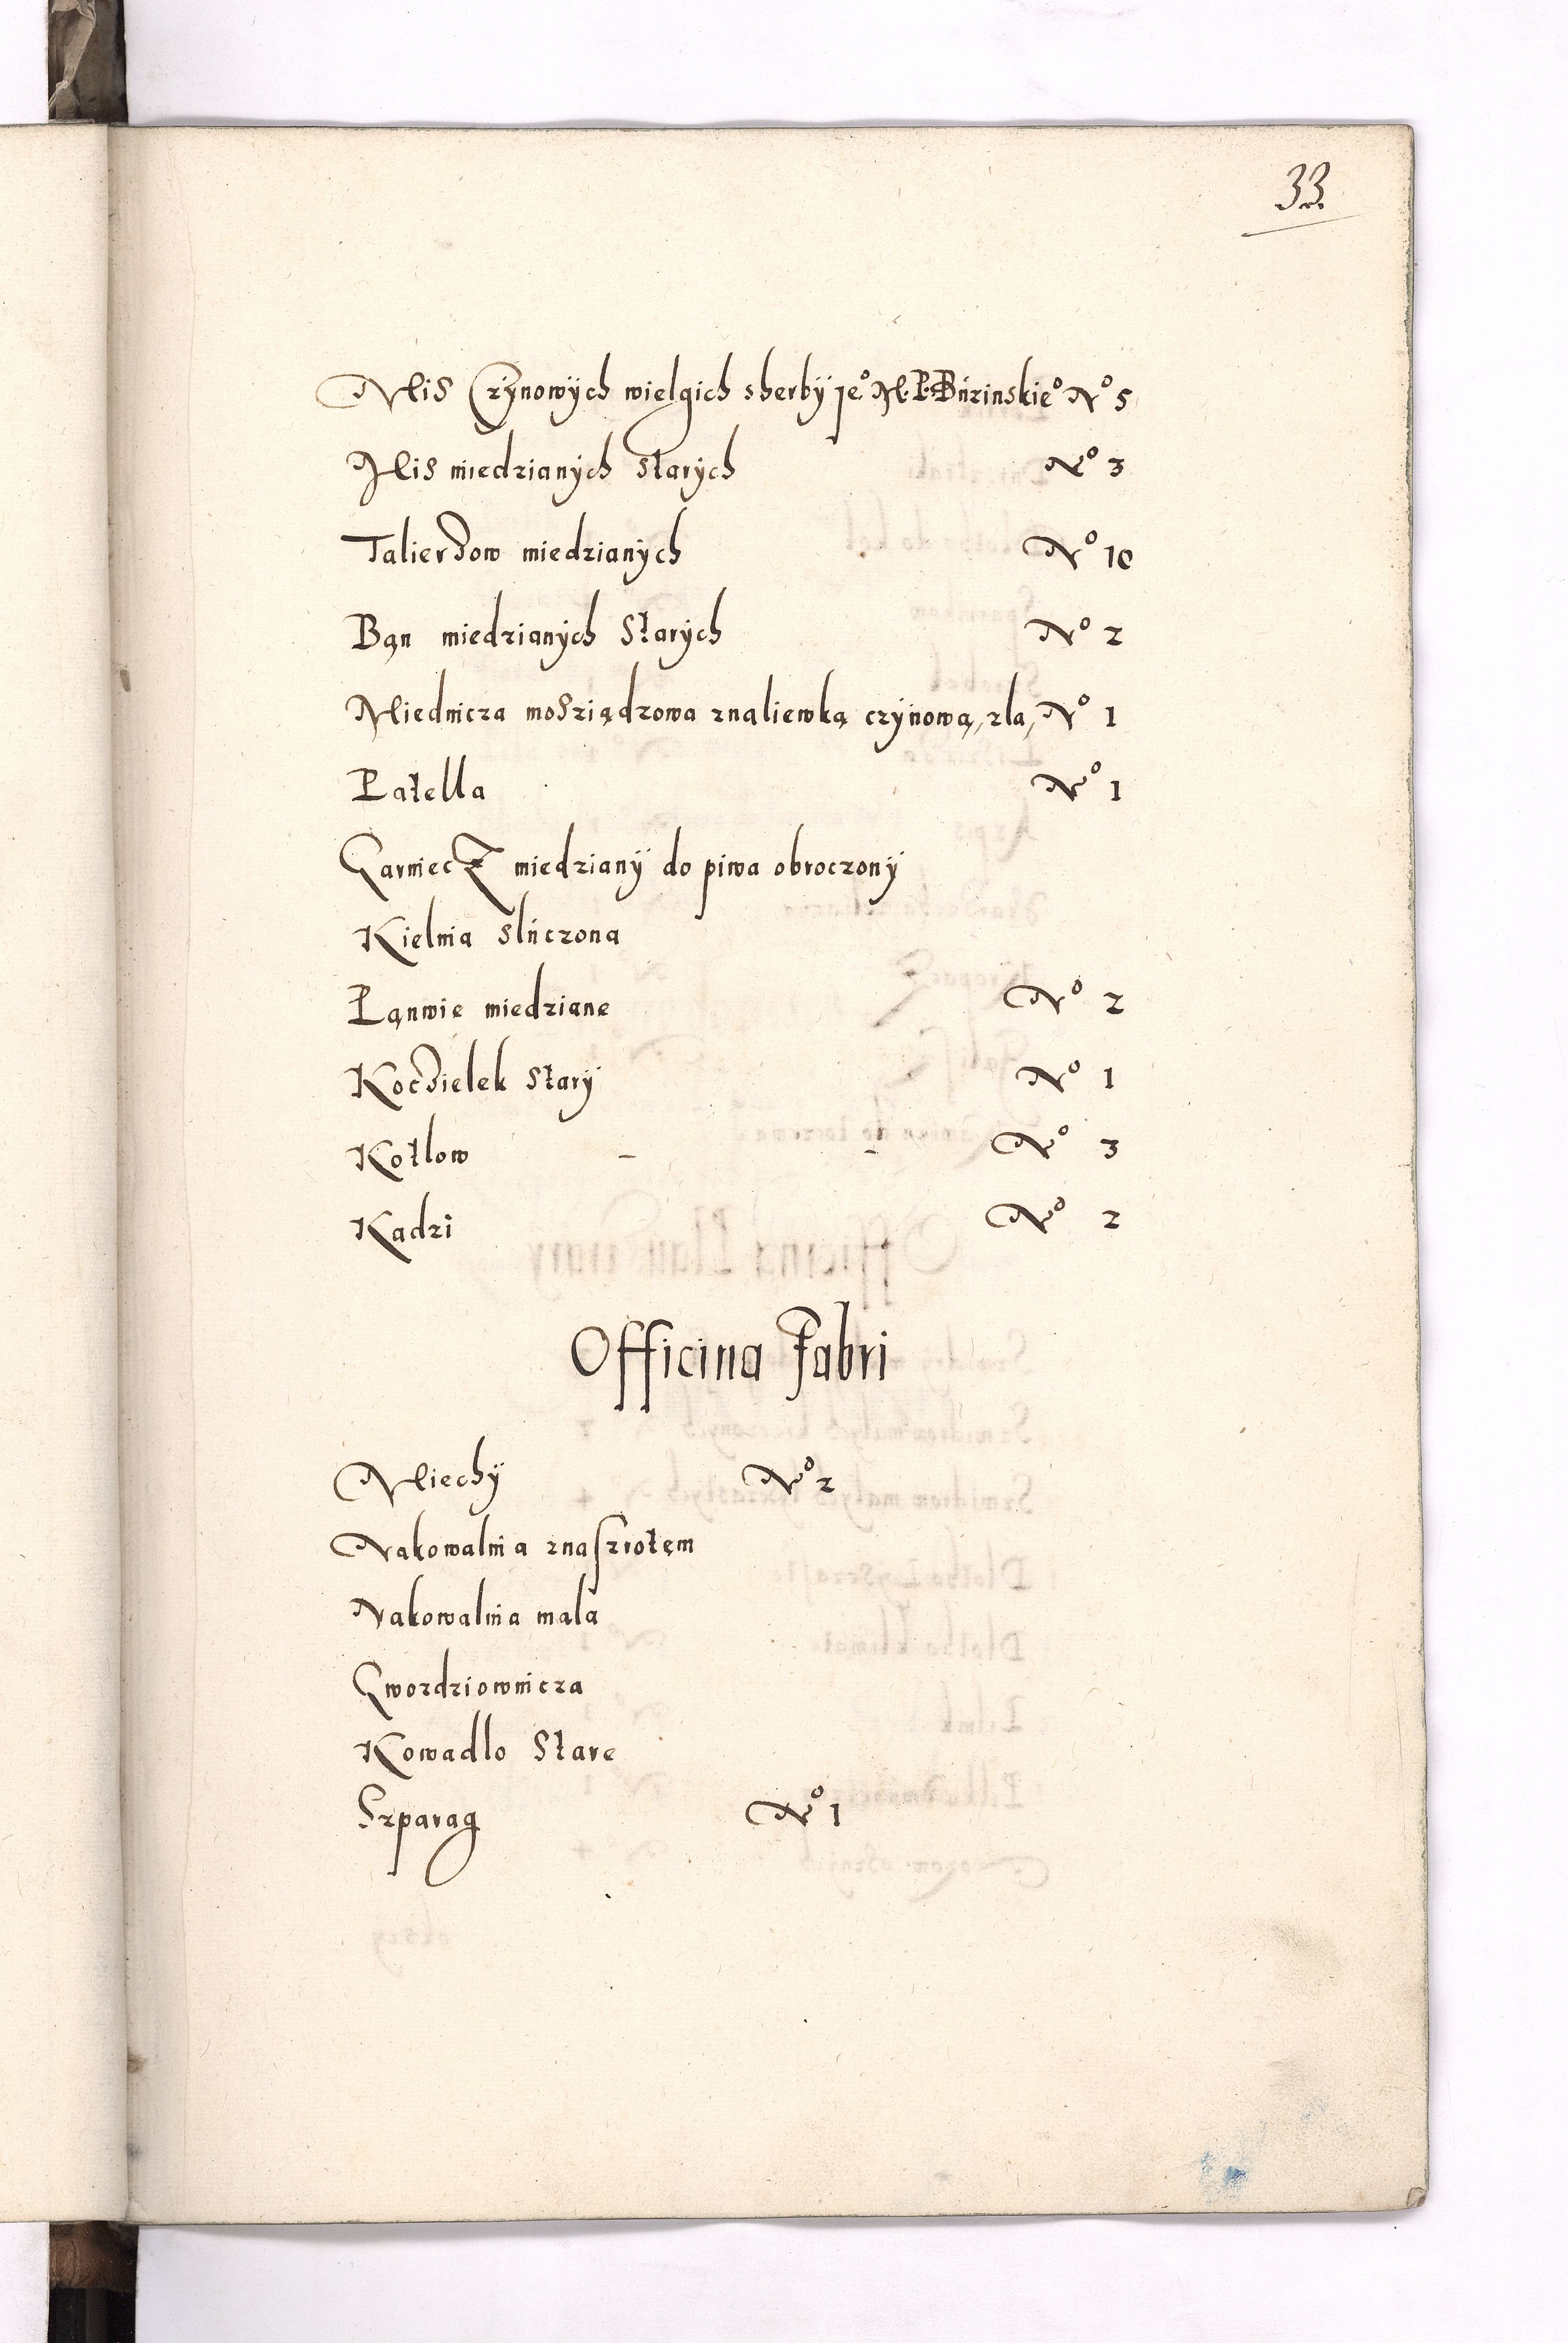 33.
Mis Czÿnowÿch wielgich sherbÿ je° M. P. Buzinskie° N° 5
Mis miedzianÿch starÿch N° 3
Talierzow miedzianÿch N° 10
Bąn miedzianÿch starÿch N° 2
Miednicza mosziądzowa znaliewką czÿnową, zla, N° 1
Patella N° 1
Garniecz miedzianÿ do piwa obroczonÿ
Kielnia slüczona
Pąnwie miedziane N° 2
Koczielek starÿ N° 1
Kotlow - - N° 3
Kadzi N° 2
Officina Fabri
Miechÿ N° 2
Nakowalnia znaszrotęm
Nakowalnia mala
Gwozdziownicza
Kowadlo stare
Szparag N° 1